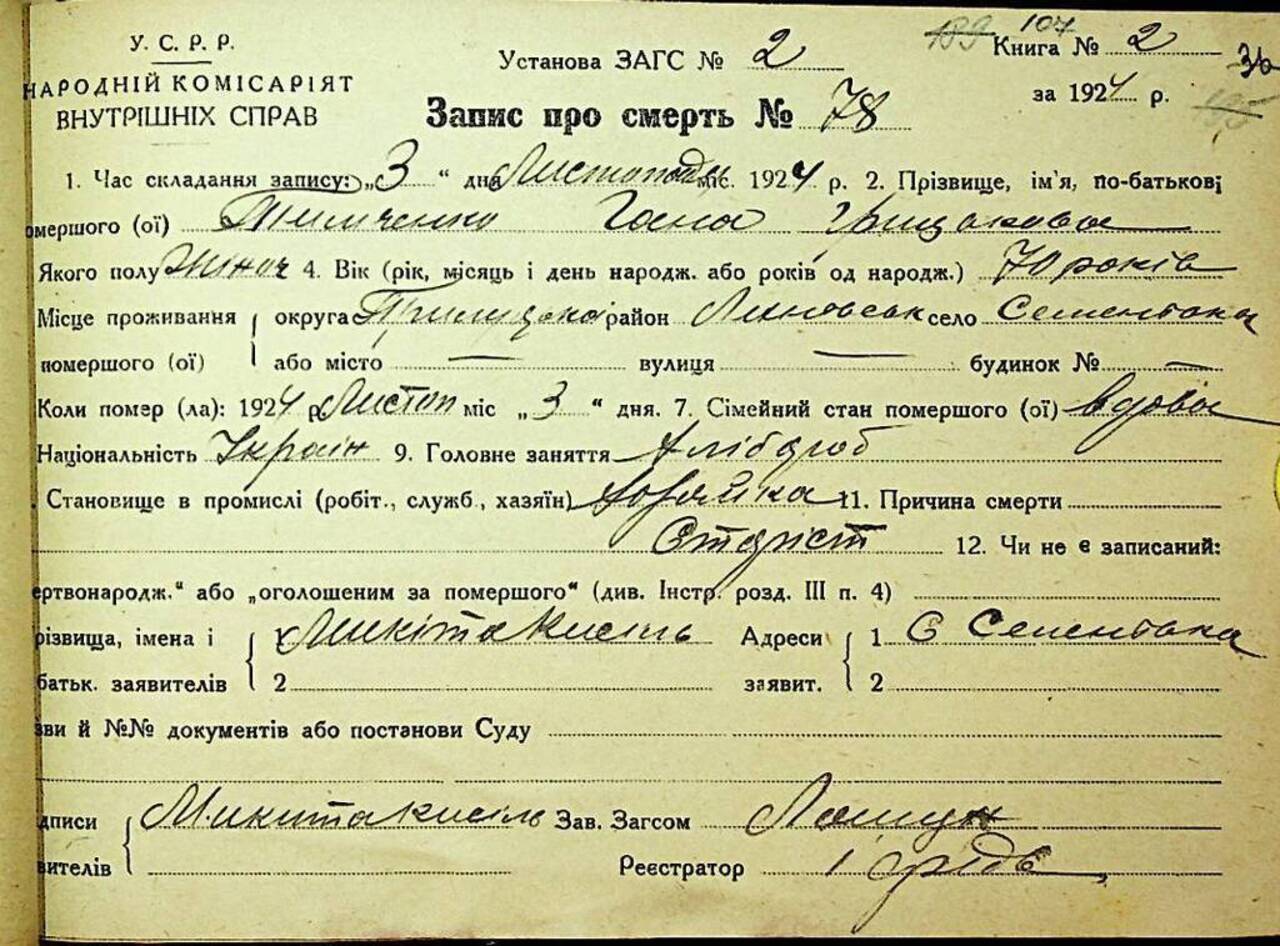 У. С. Р. Р.
НАРОДНІЙ КОМІСАРІЯТ
ВНУТРІШНІХ СПРАВ
Установа ЗАГС № 2
133 107 Книга № 2 36
за 1924 р.
Запис про смерть № 78
1. Час складання запису: „3" дня Листопада міс. 1924 р. 2. Прізвище, ім'я, по-батькові
омершого (ої) Тимченко Гана Грицькова
Якого полу Жіноч 4. Вік (рік, місяць і день народж. або років од народж.) 70 років
Місце проживання округа Прилуцька район Линовськ село Сементовка
помершого (ої) або місто — вулиця — будинок № —
Коли помер (ла): 1924 р Листоп міс „3" дня. 7. Сімейний стан помершого (ої) вдова
Національність Україн 9. Головне заняття хлібороб
Становище в промислі (робіт., служб., хазяїн) хозяйка 11. Причина смерти
Старіст 12. Чи не є записаний:
ертвонародж." або „оголошеним за помершого" (див. Інстр. розд. III п. 4)
різвища, імена і 1 Микіта Кисіль Адреси 1 С Сементовка
батьк. заявителів 2 заявит. 2
зви й №№ документів або постанови Суду
дписи Микита Кисіль Зав. Загсом
вителів Реєстратор